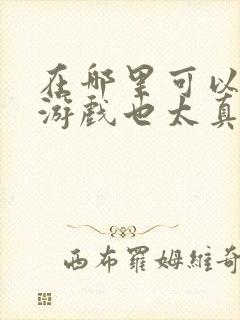 在那里可以
游戏也太真
西布罗姆维奇